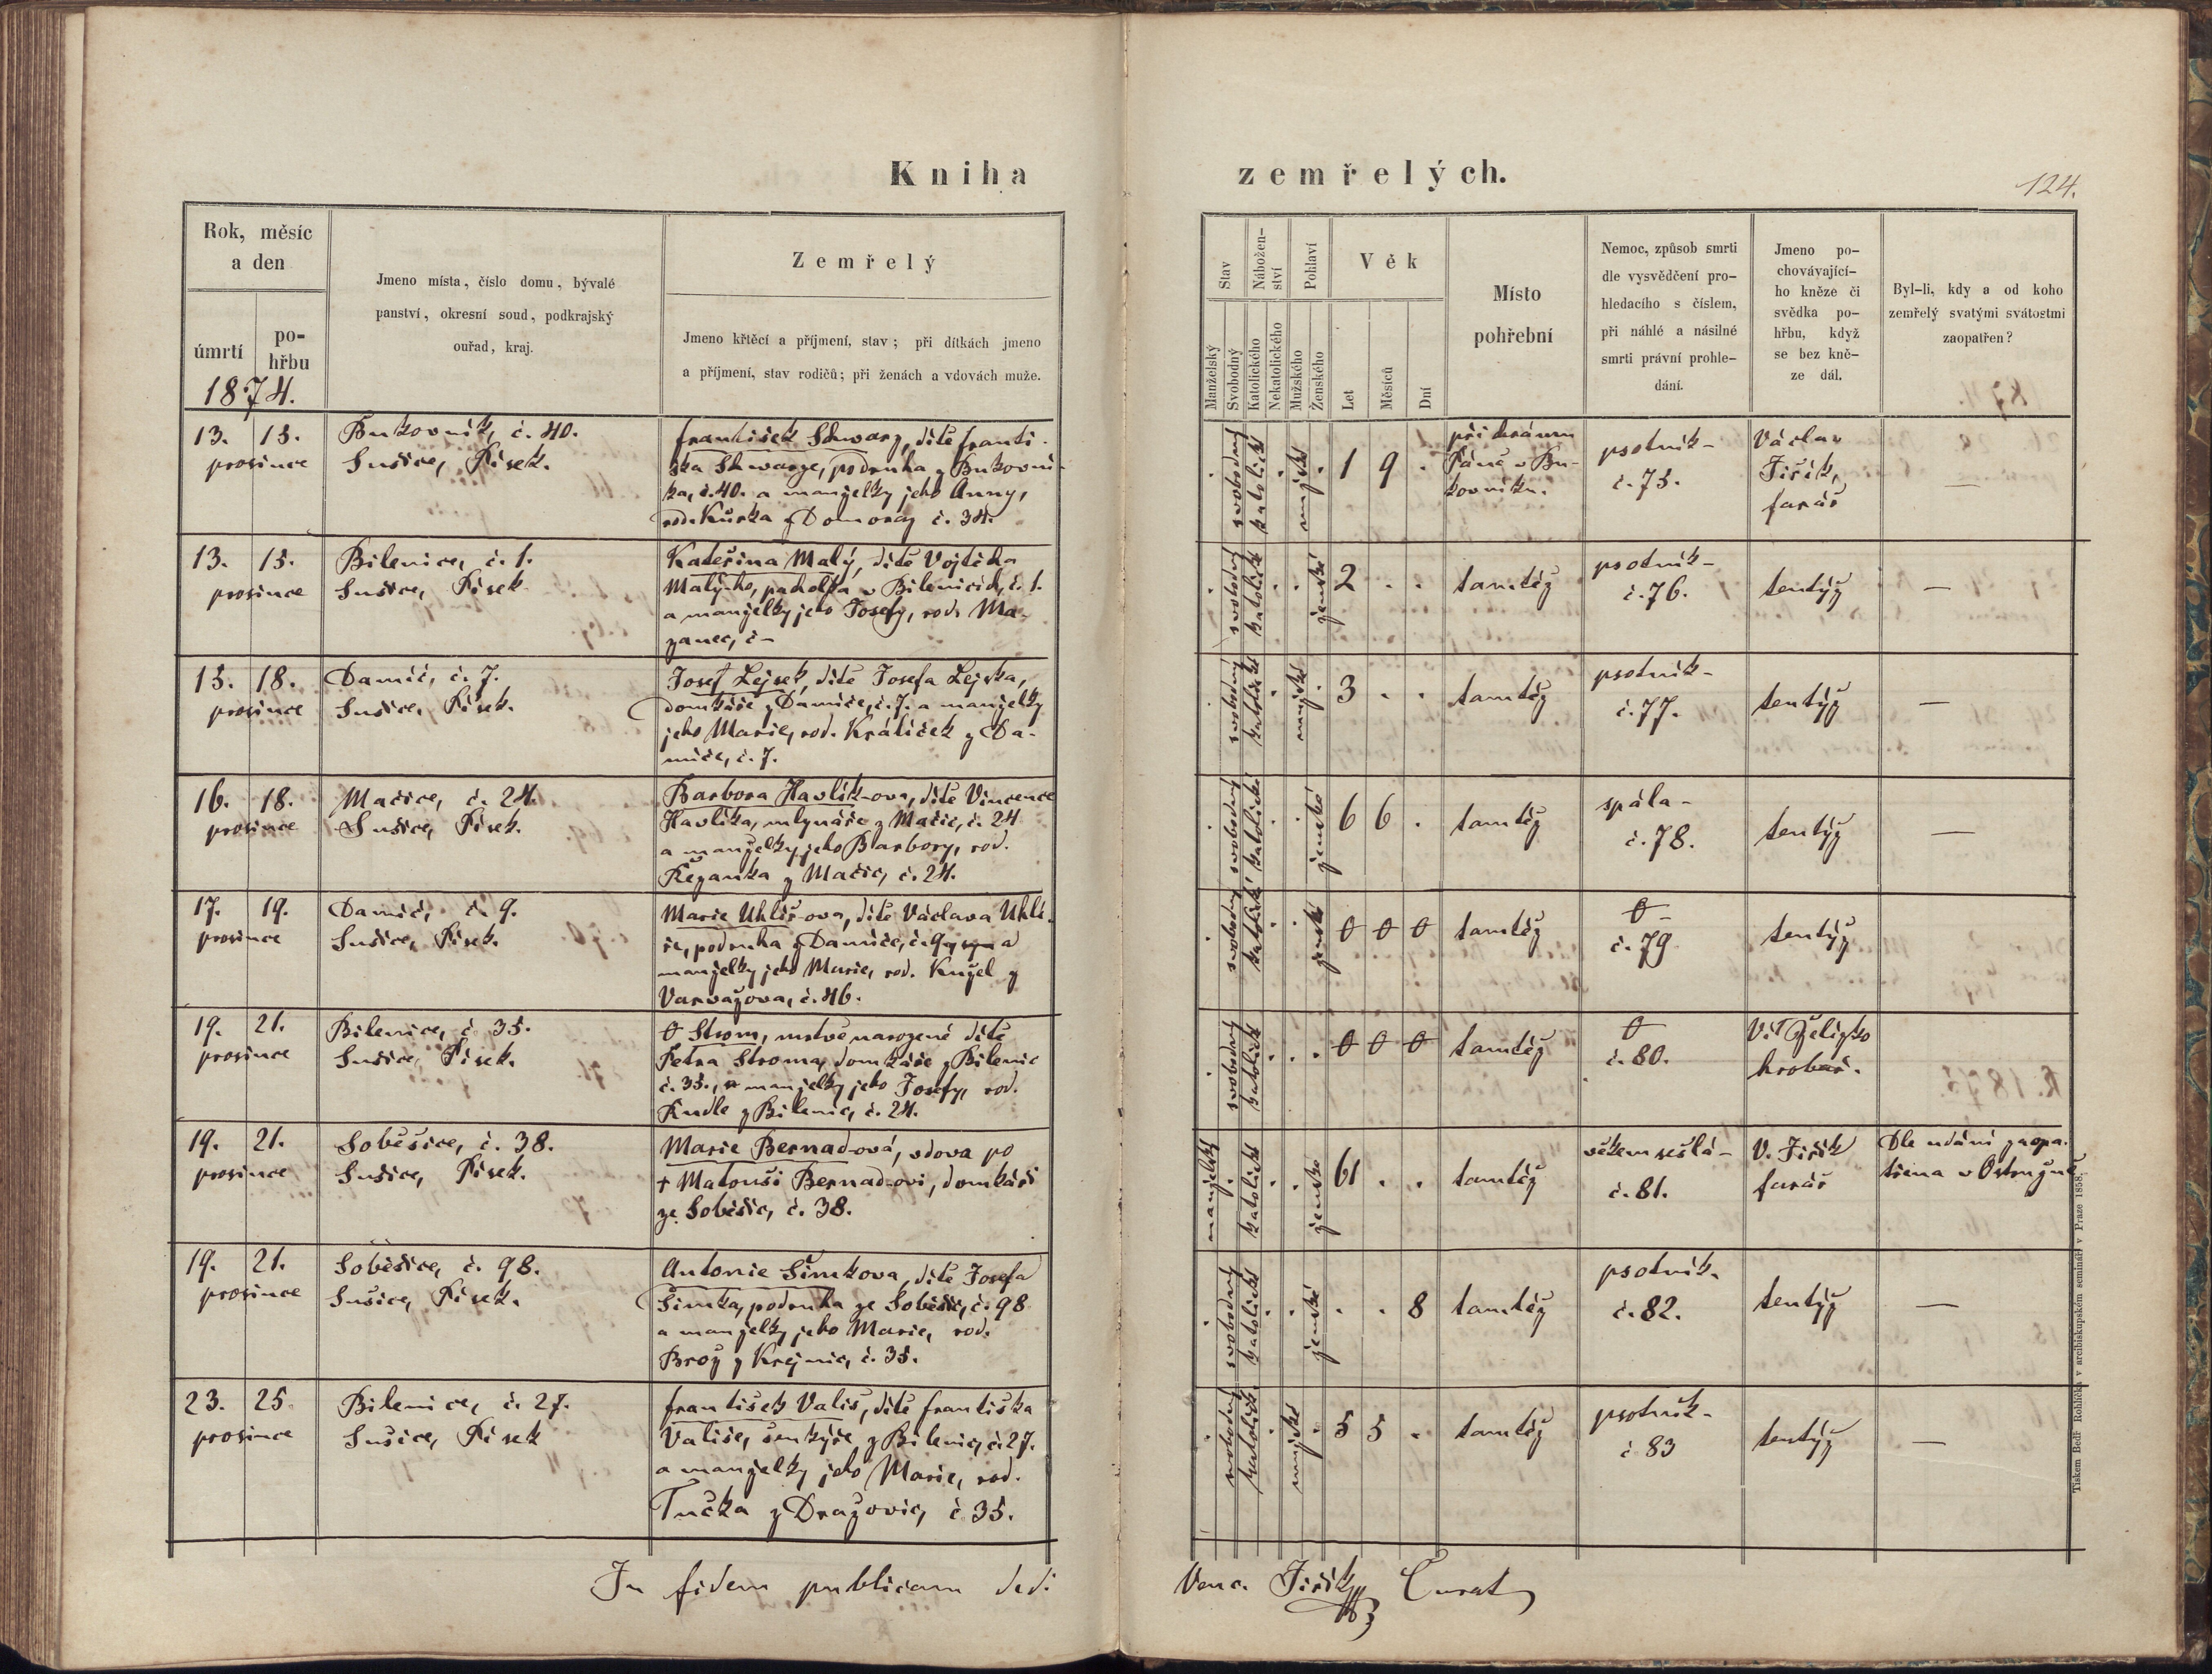 Kniha
zemřelých.
124.
Rok, měsíc
a den
úmrtí
po-
hřbu
1874.
Jmeno místa, číslo domu, bývalé
panství, okresní soud, podkrajský
ouřad, kraj.
Zemřelý
Jmeno křtěcí a příjmení, stav; při dítkách jmeno
a příjmení, stav rodičů; při ženách a vdovách muže.
Stav
Nábožen-
ství
Pohlaví
Věk
Manželský
Svobodný
Katolického
Nekatolického
Mužského
Ženského
Let
Měsíců
Dní
Místo
pohřební
Nemoc, způsob smrti
dle vysvědčení pro-
hledacího s číslem,
při náhlé a násilné
smrti právní prohle-
dání.
Jmeno po-
chovávající-
ho kněze či
svědka po-
hřbu, když
se bez kně-
ze dál.
Byl-li, kdy a od koho
zemřelý svatými svátostmi
zaopatřen?
13. 15.
prosince
Bukovník, č. 40.
Sušice, Písek.
František Schwarz, dítě Franti-
ška Schwarze, podruha z Bukovní-
ka, č. 40. a manželky jeho Anny,
rod. Kůrka z Domoraz č. 34.
svobodný
katolické
mužské
1 9 .
při chrámu
Páně v Bu-
kovníku.
psotník-
č. 75.
Václav
Jiřík,
farář
—
13. 15.
prosince
Bílenice, č. 1.
Sušice, Písek
Kateřina Malý, dítě Vojtěcha
Malýho, pacholka v Bílenicích, č. 1.
a manželky jeho Josefy, rod. Ma-
zanec, č –
svobodný
katolické
ženské
2 . .
tamtéž
psotník-
č. 76.
tentýž
—
15. 18.
prosince
Damíč, č. 7.
Sušice, Písek.
Josef Lejsek, dítě Josefa Lejska,
domkáře z Damíče, č. 7. a manželky
jeho Marie, rod. Králíček z Da-
míče, č. 7.
svobodný
katolické
mužské
3 . .
tamtéž
psotník-
č. 77.
tentýž
—
16. 18.
prosince
Mačice, č. 24.
Sušice, Písek.
Barbora Havlík-ova, dítě Vincence
Havlíka, mlynáře z Mačic, č. 24
a manželky jeho Barbory, rod.
Řezanka z Mačic, č. 24.
svobodný
katolické
ženské
6 6 .
tamtéž
spála-
č. 78.
tentýž
—
17. 19.
prosince
Damíč, č. 9.
Sušice, Písek.
Marie Uhlíř-ova, dítě Václava Uhlí-
ře, podruha z Damíče, č. 9 a
manželky jeho Marie, rod. Kugel z
Varvažova, č. 46.
svobodný
katolické
ženské
0 0 0
tamtéž
0 -
č. 79
tentýž
19. 21.
prosince
Bílenice, č 35.
Sušice, Písek.
0 Strom, mrtvě narozené dítě
Petra Stroma, domkáře z Bílenic
č. 35., a manželky jeho Josefy, rod.
Kudle z Bílenic, č. 24.
svobodný
katolické
0 0 0
tamtéž
0
č. 80.
Vít Želízko
hrobař.
19. 21.
prosince
Soběšice, č. 38.
Sušice, Písek.
Marie Bernad-ová, vdova po
† Matouši Bernad-ovi, domkáři
ze Soběšic, č. 38.
manželský
katolické
ženské
61 . .
tamtéž
věkem sešlá-
č. 81.
V. Jiřík
farář
Dle udání zaopa-
třena v Ostružně
19. 21.
prosince
Soběšice, č. 98.
Sušice, Písek.
Antonie Šimkova, dítě Josefa
Šimka, podruha ze Soběšic, č. 98
a manželky jeho Marie, rod.
Brož z Krejnic, č. 35.
svobodný
katolické
ženské
. . 8
tamtéž
psotník.
č. 82.
tentýž
—
23. 25.
prosince
Bílenice, č. 27.
Sušice, Písek
František Vališ, dítě Františka
Vališe, šenkýře z Bílenic, č. 27.
a manželky jeho Marie, rod.
Tučka z Dražovic, č 35.
svobodný
katolické
mužské
5 5 .
tamtéž
psotník-
č 83
tentýž
—
In fidem publicam dedi
Venc. Jiřík Curat
Tiskem Bedř. Rohlíčka v arcibiskupském semináři v Praze 1858.